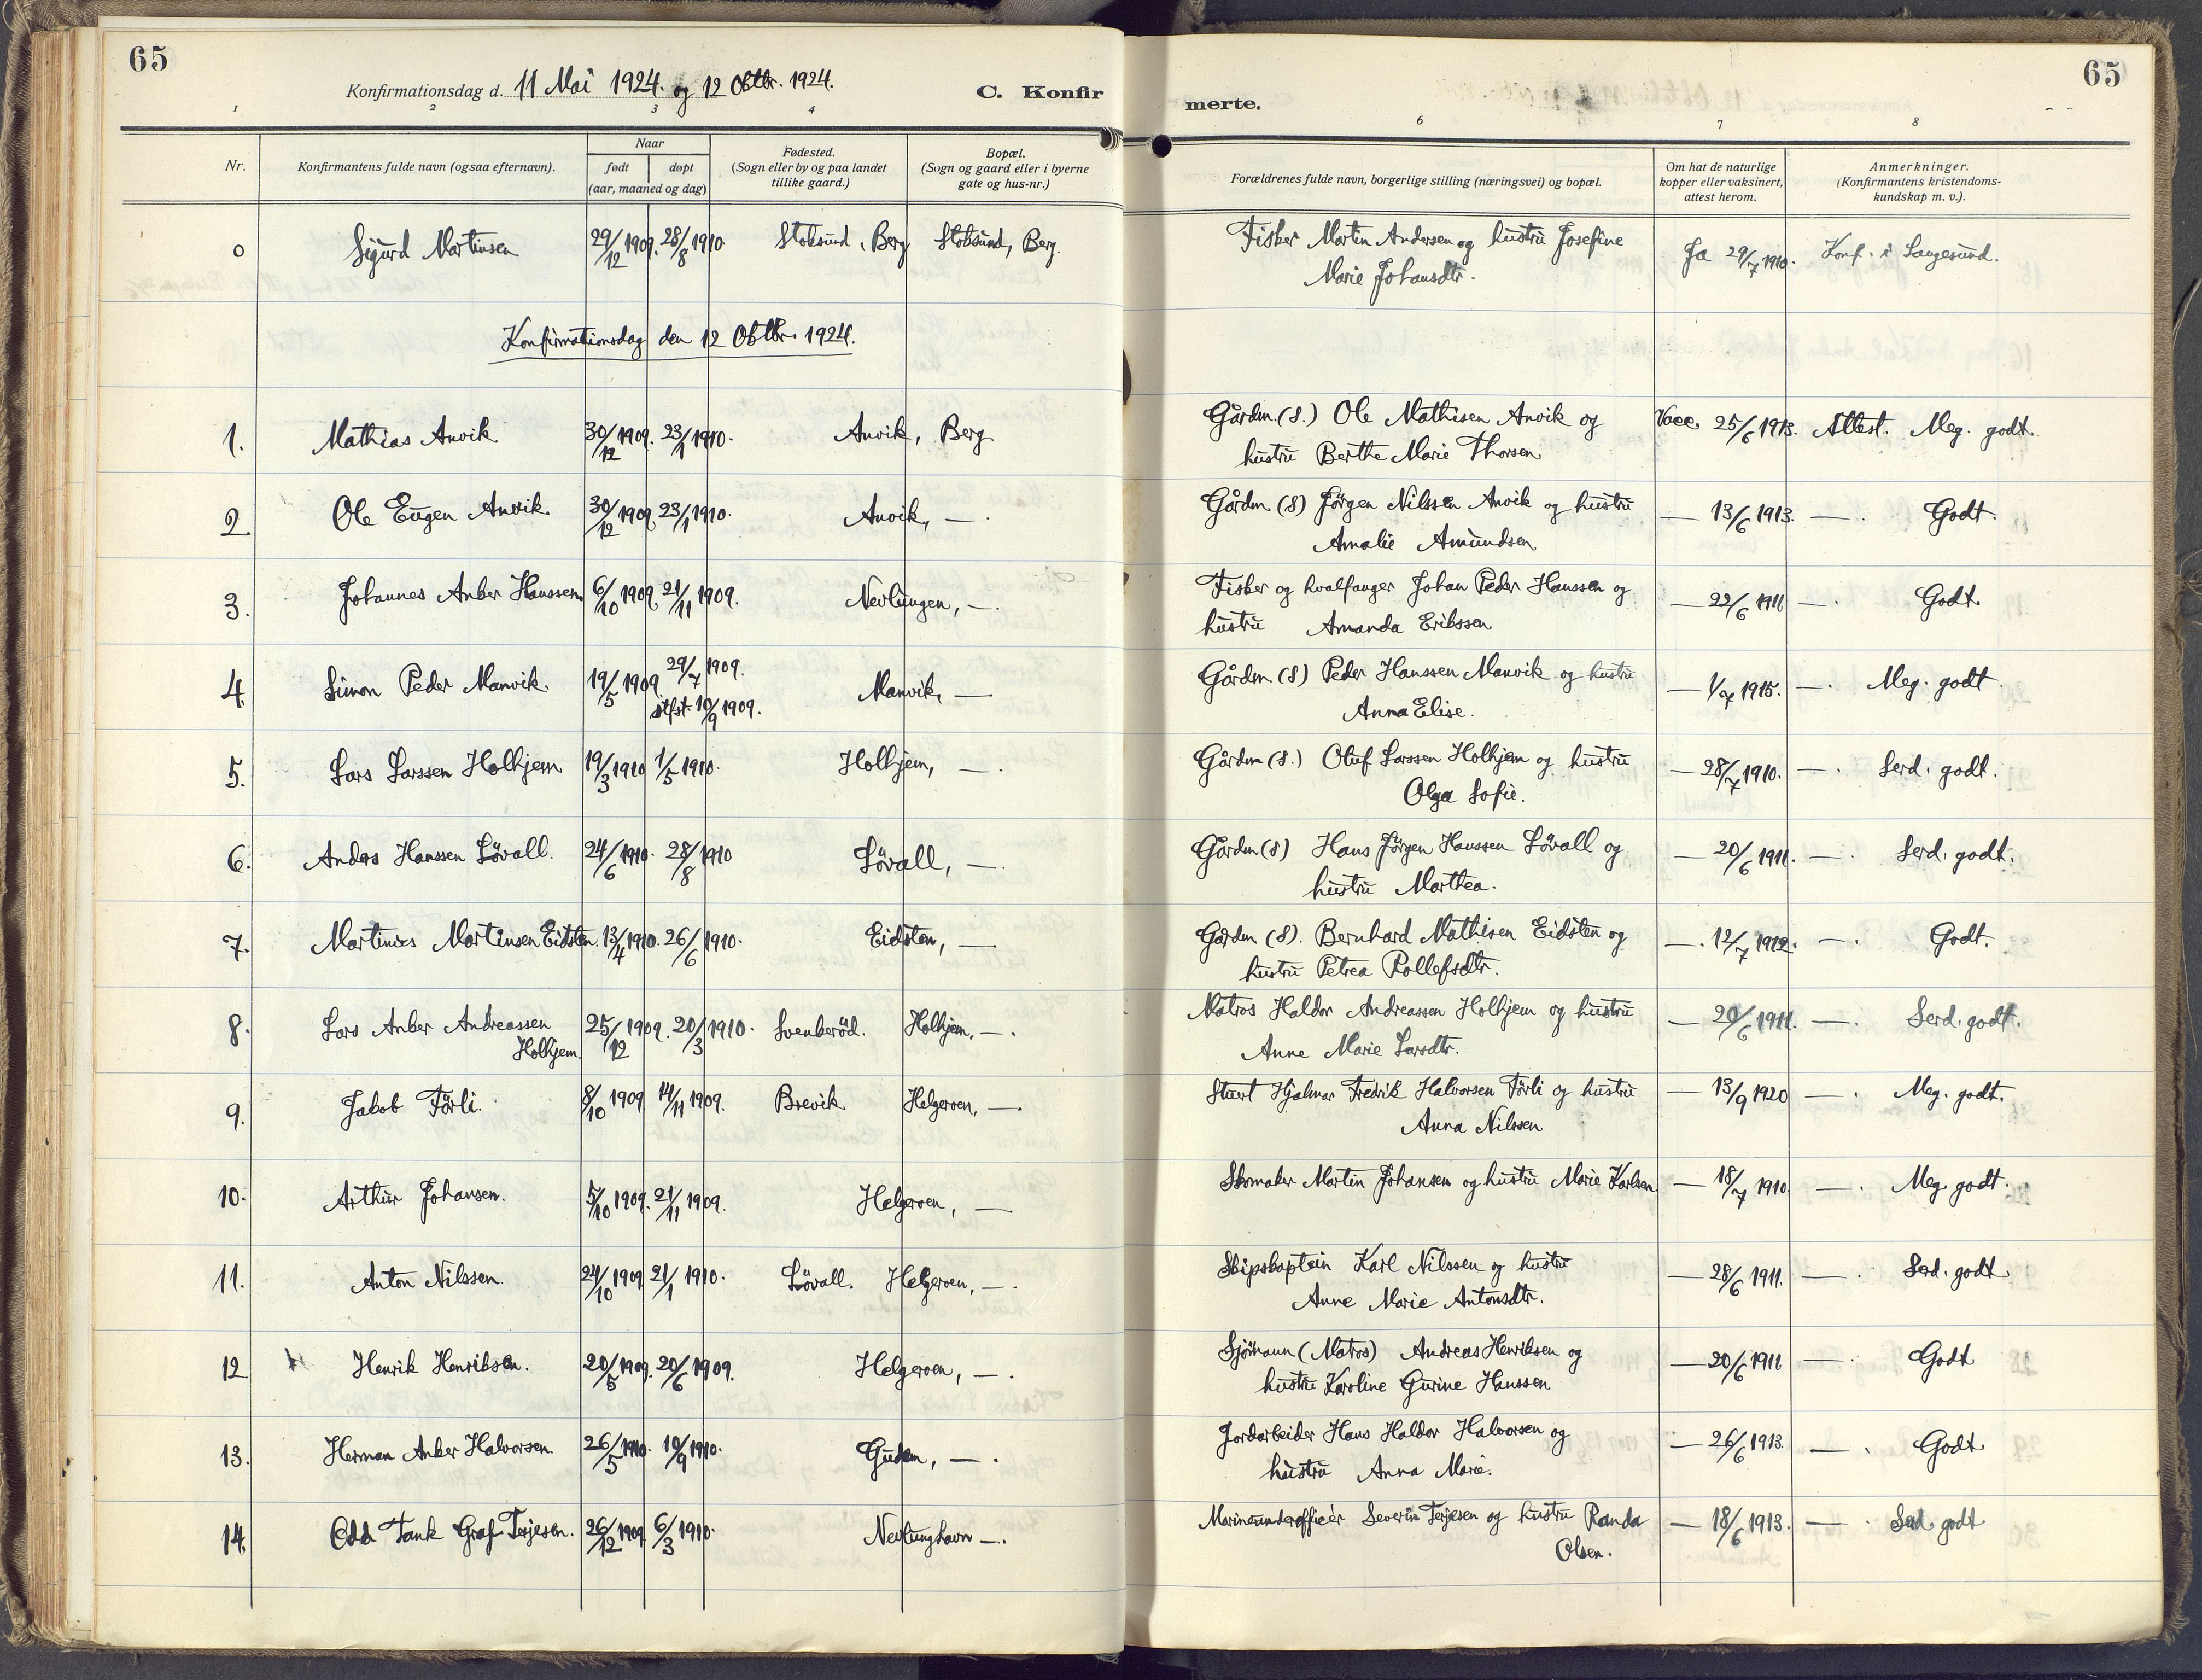 65
65
Konfirmationsdag d. 11 Mai 1924. og 12 Oktbr. 1924.
C. Konfir
merte.
1 2 3 4 6 7 8
Nr.
Konfirmantens fulde navn (ogsaa efternavn).
Naar
født døpt
(aar, maaned og dag)
Fødested.
(Sogn eller by og paa landet
tillike gaard.)
Bopæl.
(Sogn og gaard eller i byerne
gate og hus-nr.)
Forældrenes fulde navn, borgerlige stilling (næringsvei) og bopæl.
Om hat de naturlige
kopper eller vaksinert,
attest herom.
Anmerkninger.
(Konfirmantens kristendoms-
kundskap m. v.).
0 Sigurd Martinsen 29/12 1909. 28/8 1910. Stoksund, Berg Stoksund, Berg. Fisker Martin Andersen og hustru Josefine Ja 29/7 1910. Konf. i Langesund.
Marie Johansdtr.
Konfirmationsdag den 12 Oktbr. 1924.
1. Mathias Anvik 30/12 1909. 23/1 1910. Anvik, Berg Gårdm. (S.) Ole Mathisen Anvik og Vacc. 25/6 1913. Attest. Meg. godt.
hustru Berthe Marie Thorsen
2 Ole Eugen Anvik 30/12 1909. 23/1 1910. Anvik, —. Gårdm. (S) Jörgen Nilssen Anvik og hustru — 13/6 1913. —. Godt.
Amalie Amundsen
3. Johannes Anker Hanssen 6/10 1909. 21/11 1909. Nevlungen, —. Fisker og hvalfanger Johan Peder Hanssen og — 22/6 1911 —. Godt.
hustru Amanda Erikssen
4. Simon Peder Manvik. 19/5 1909 29/7 1909. Manvik, — Gårdm (S) Peder Hanssen Manvik og hustru — 1/7 1915. —. Meg. godt.
stfst. 10/9 1909. Anna Elise.
5. Lars Larssen Holkjem 19/3 1910 1/5 1910. Holkjem, —. Gårdm (S.) Oluf Larssen Holkjem og hustru — 28/7 1910. —. Serd. godt.
Olga Sofie.
6. Anders Hanssen Lövall. 24/6 1910. 28/8 1910 Lövall, —. Gårdm (S) Hans Jörgen Hanssen Lövall og — 20/6 1911. —. Serd. godt.
hustru Marthea.
7. Martinius Martinsen Eidsten. 13/4 1910. 26/6 1910. Eidsten, — Gårdm (S). Bernhard Mathisen Eidsten og —. 12/7 1912. —. Godt.
hustru Petrea Rollefsdtr.
8. Lars Anker Andreassen 25/12 1909. 20/3 1910. Svenkeröd. Holkjem, —. Matros Haldor Andreassen Holkjem og hustru — 20/6 1911. —. Serd. godt.
Holkjem Anne Marie Larsdtr.
9. Jakob Törli. 8/10 1909 14/11 1909. Brevik Helgeroen, —. Stuert Hjalmar Fredrik Halvorsen Törli og hustru — 13/9 1920 —. Meg. godt.
Anna Nilssen
10. Arthur Johansen. 5/10 1909. 21/11 1909. Helgeroen, — Skomaker Martin Johansen og hustru Marie Karlsen — 18/7 1910 —. Meg. godt.
11. Anton Nilssen. 24/10 1909 21/1 1910. Lövall. Helgeroen, —. Skipskaptein Karl Nilssen og hustru — 28/6 1911. —. Serd. godt
Anne Marie Antonsdtr.
12 Henrik Henriksen. 20/5 1909. 20/6 1909. Helgeroen, —. Sjömann (Matros) Andreas Henriksen og — 20/6 1911 —. Godt
hustru Karoline Gurine Hanssen
13. Herman Anker Halvorsen 26/5 1910. 10/9 1910. Gudem, —. Jordarbeider Hans Haldor Halvorsen og — 26/6 1913. —. Godt
hustru Anna Marie.
14. Odd Tank Graf Terjesen. 26/12 1909. 6/3 1910. Nevlunghavn —. Marineunderofficér Severin Terjesen og hustru Randa — 18/6 1913. —. Serd. godt
Olsen.